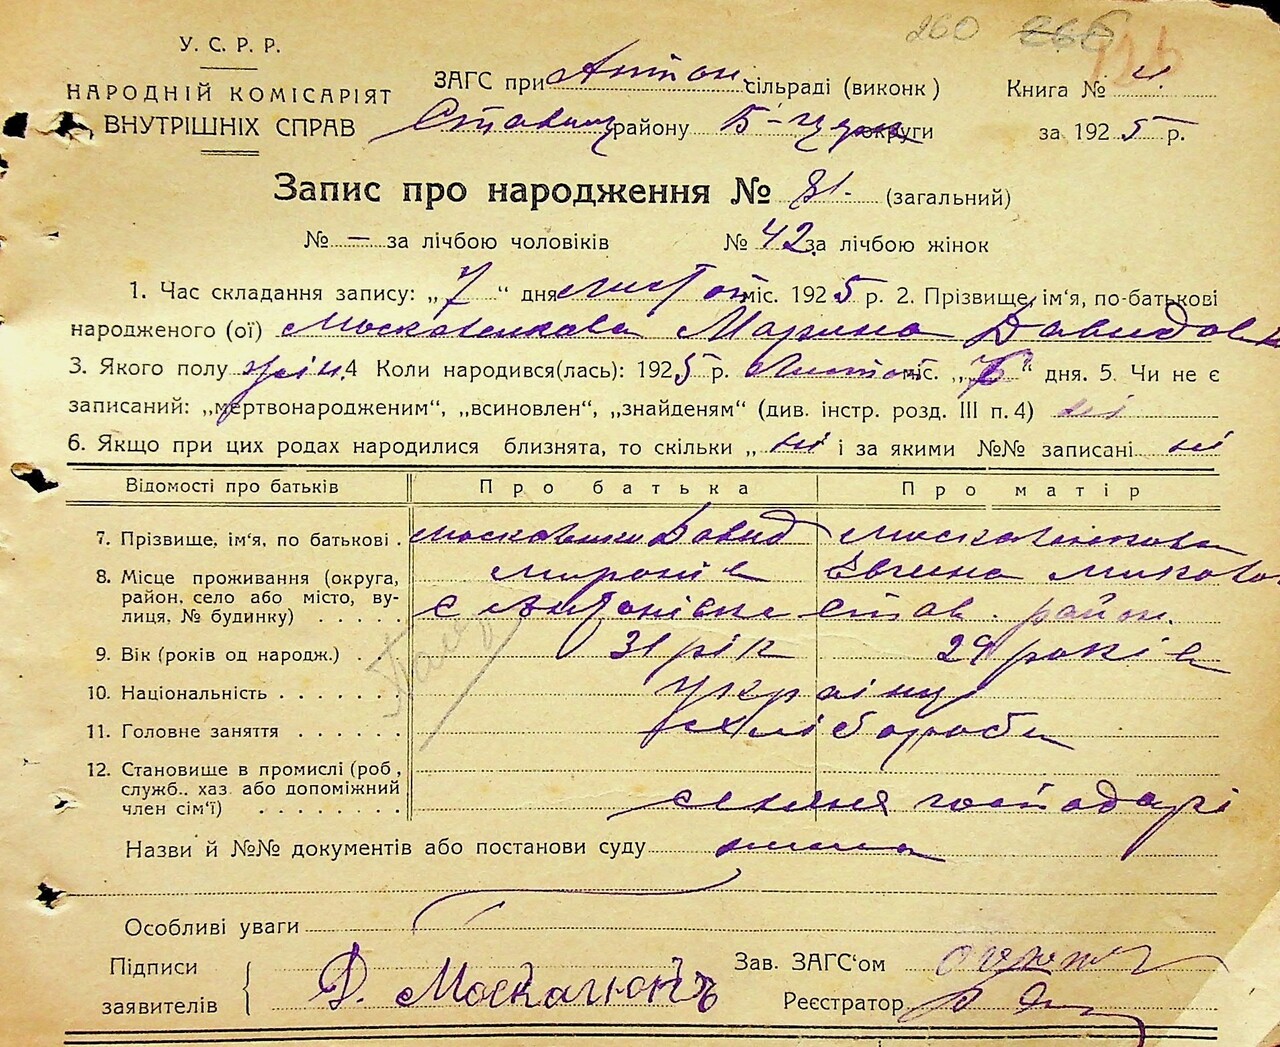 260
У. С. Р. Р.
НАРОДНІЙ КОМІСАРІЯТ
ВНУТРІШНІХ СПРАВ
ЗАГС при Антон. сільраді (виконк.)
Книга № 4
Ставищ району Б-Церк округи
за 1925 р.
Запис про народження № 81. (загальний)
№ — за лічбою чоловіків № 42 за лічбою жінок
1. Час складання запису: „7“ дня листоп міс. 1925 р. 2. Прізвище, ім'я, по-батькові
народженого (ої) Марина Давидов
3. Якого полу жін. 4 Коли народився(лась): 1925 р. міс. „ “ дня. 5. Чи не є
записаний: „мертвонародженим“, „всиновлен“, „знайденям“ (див. інстр. розд. III п. 4) ні
6. Якщо при цих родах народилися близнята, то скільки „ ні і за якими №№ записані ні
Відомості про батьків
Про батька
Про матір
7. Прізвище, ім'я, по батькові . Давид
8. Місце проживання (округа, миронів Евгина
район, село або місто, ву-
лиця, № будинку) . . . . . с Антонівка став. район.
9. Вік (років од народж.) . 31 рік 29 років
10. Національність . . . . . . україну
11. Головне заняття . . . . . . хлібороби
12. Становище в промислі (роб.,
служб., хаз або допоміжний
член сім'ї) . . . . . . . . господарі
Назви й №№ документів або постанови суду нима
Особливі уваги
Підписи
заявителів
Д. Москалюкъ
Зав. ЗАГС'ом
Реєстратор